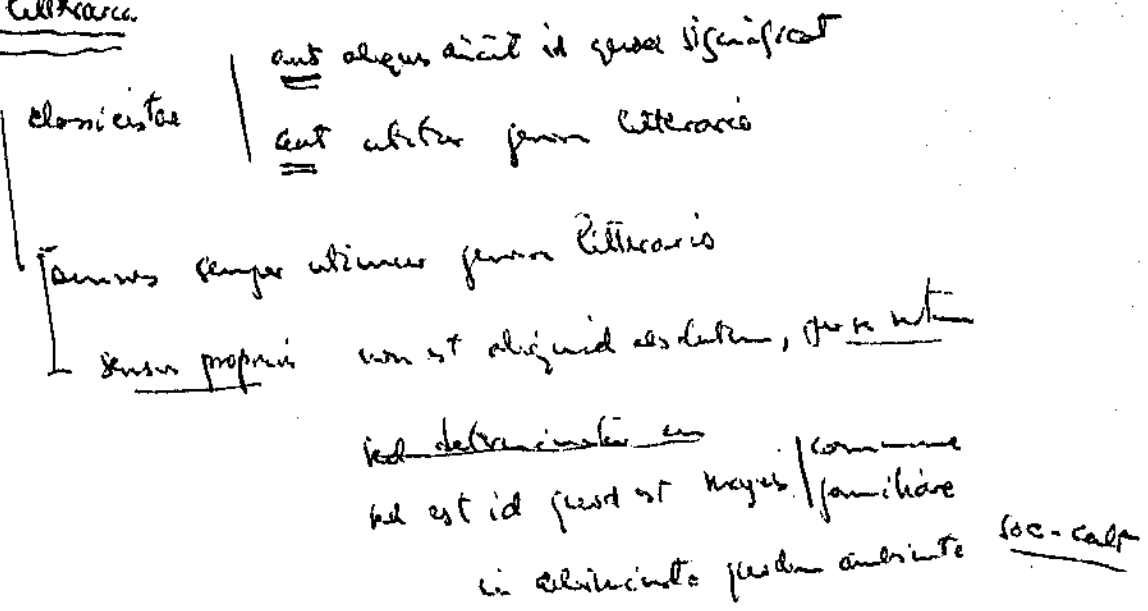 litteraria
classicistae
aut aliquis dicit id quod significat
aut utitur genere litterario
omnes semper utimur genere litterario
sensus proprius non est aliquid absolutum, per se notum
sed determinatur
sed est id quod est magis commune
familiare
in determinato quodam ambiente soc-cult